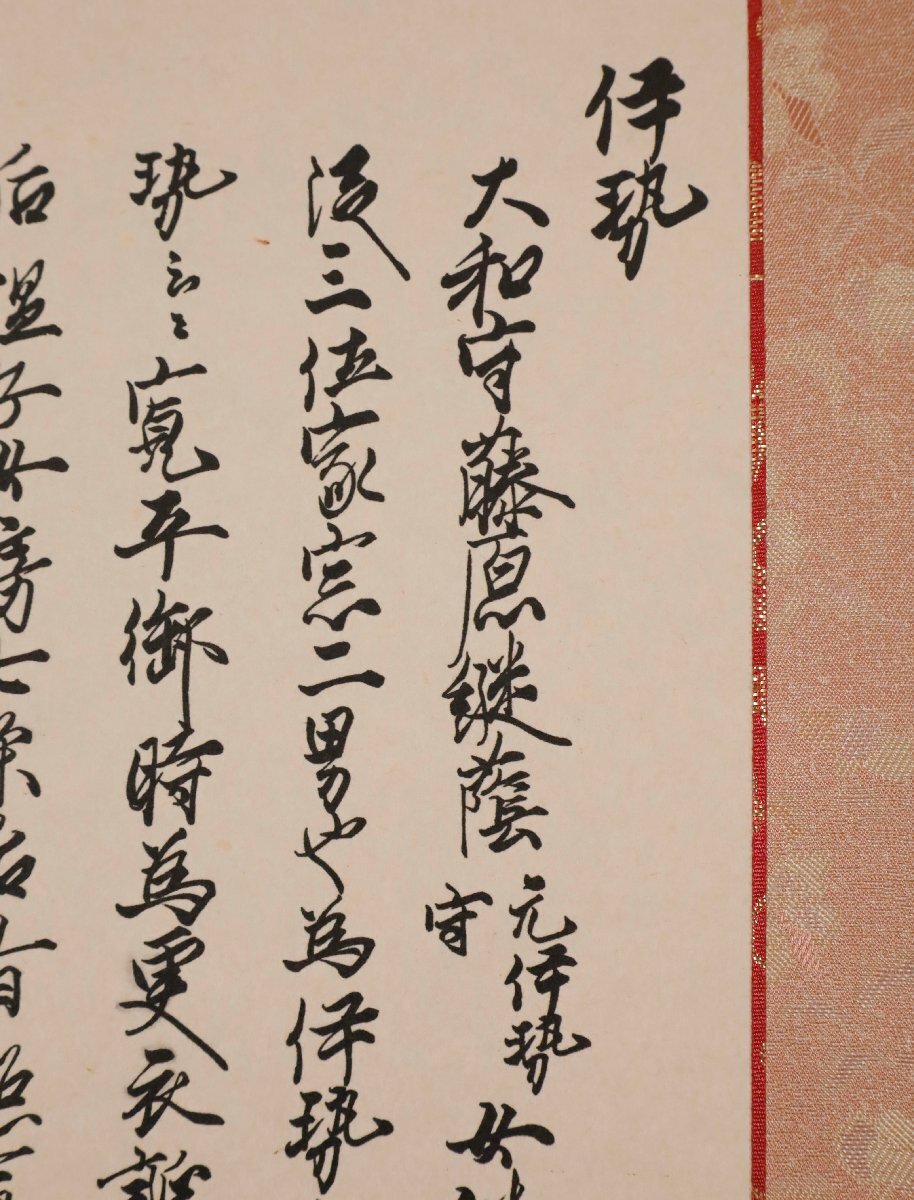 伊勢
大和守藤原継蔭元伊勢守女
従三位家宗二男也為伊勢
勢云々寛平御時為更衣誕
后温子女房七条后有